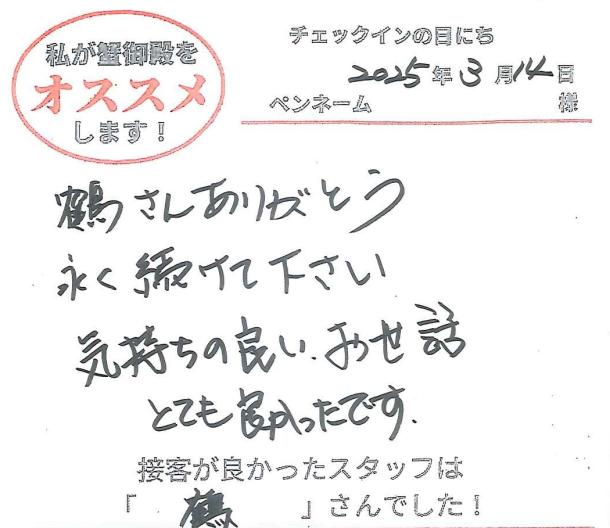 私が蟹御殿を
オススメ
します！
チェックインの日にち
2025年3月14日
ペンネーム 様
鶴さんありがとう
永く続けて下さい
気持ちの良い、お世話
とても良かったです.
接客が良かったスタッフは
「鶴」さんでした！